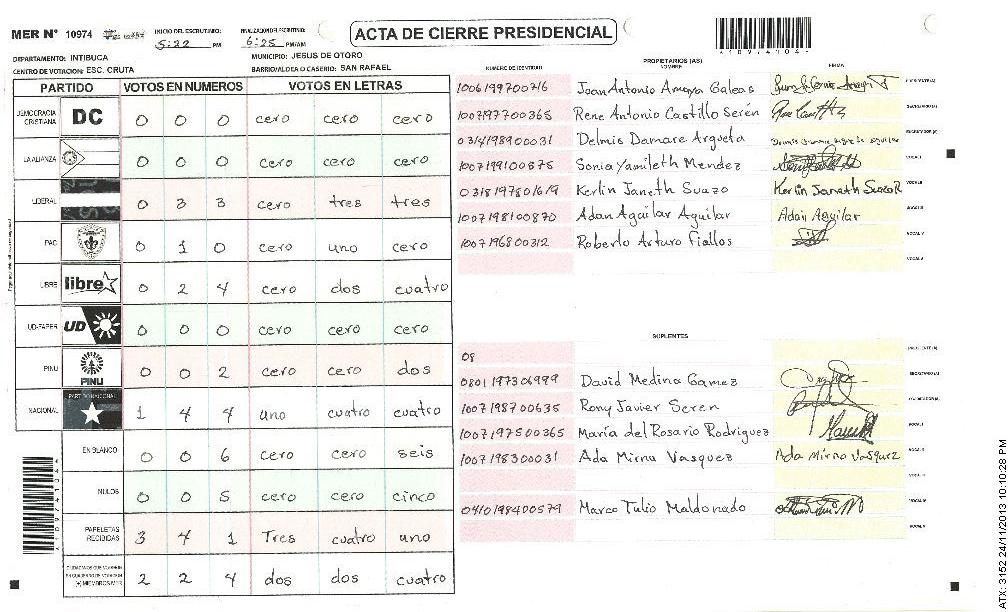 MER N° 10974
INICIO DEL ESCRUTINIO: 5:22 PM
FINALIZACION DEL ESCRUTINIO: 6:25 PM/AM
ACTA DE CIERRE PRESIDENCIAL
DEPARTAMENTO: INTIBUCA
MUNICIPIO: JESUS DE OTORO
CENTRO DE VOTACION: ESC. CRUTA
BARRIO/ALDEA O CASERIO: SAN RAFAEL
PARTIDO VOTOS EN NUMEROS VOTOS EN LETRAS
DEMOCRACIA CRISTIANA DC 0 0 0 cero cero cero
LA ALIANZA 0 0 0 cero cero cero
LIBERAL 0 3 3 cero tres tres
PAC 0 1 0 cero uno cero
LIBRE libre 0 2 4 cero dos cuatro
UD-FAPER UD 0 0 0 cero cero cero
PINU PINU 0 0 2 cero cero dos
NACIONAL PARTIDO NACIONAL 1 4 4 uno cuatro cuatro
EN BLANCO 0 0 6 cero cero seis
NULOS 0 0 5 cero cero cinco
PAPELETAS RECIBIDAS 3 4 1 Tres cuatro uno
CIUDADANOS QUE VOTARON EN CUADERNO DE VOTACION (+) MIEMBROS MER 2 2 4 dos dos cuatro
NUMERO DE IDENTIDAD PROPIETARIOS (AS) NOMBRE FIRMA
1006199700716 Joan Antonio Amaya Galeas PRESIDENTE(A)
1007197700365 Rene Antonio Castillo Serén SECRETARIO(A)
0314198900031 Delmis Damare Argueta ESCRUTADOR(A)
1007199100875 Sonia Yamileth Mendez VOCAL I
0318197501619 Kerlin Janeth Suazo Kerlin Janeth Suazo R VOCAL II
1007198100870 Adan Aguilar Aguilar Adán Aguilar VOCAL III
1007196800312 Roberto Arturo Fiallos VOCAL IV
VOCAL V
SUPLENTES
08 PRESIDENTE(A)
0801197306999 David Medina Gamez SECRETARIO(A)
1007198700635 Rony Javier Seren ESCRUTADOR(A)
1007197500365 María del Rosario Rodriguez VOCAL I
1007198300031 Ada Mirna Vasquez Ada Mirna Vasquez VOCAL II
VOCAL III
0410198400579 Marco Tulio Maldonado VOCAL IV
VOCAL V
ATX: 3152 24/11/2013 10:10:28 PM